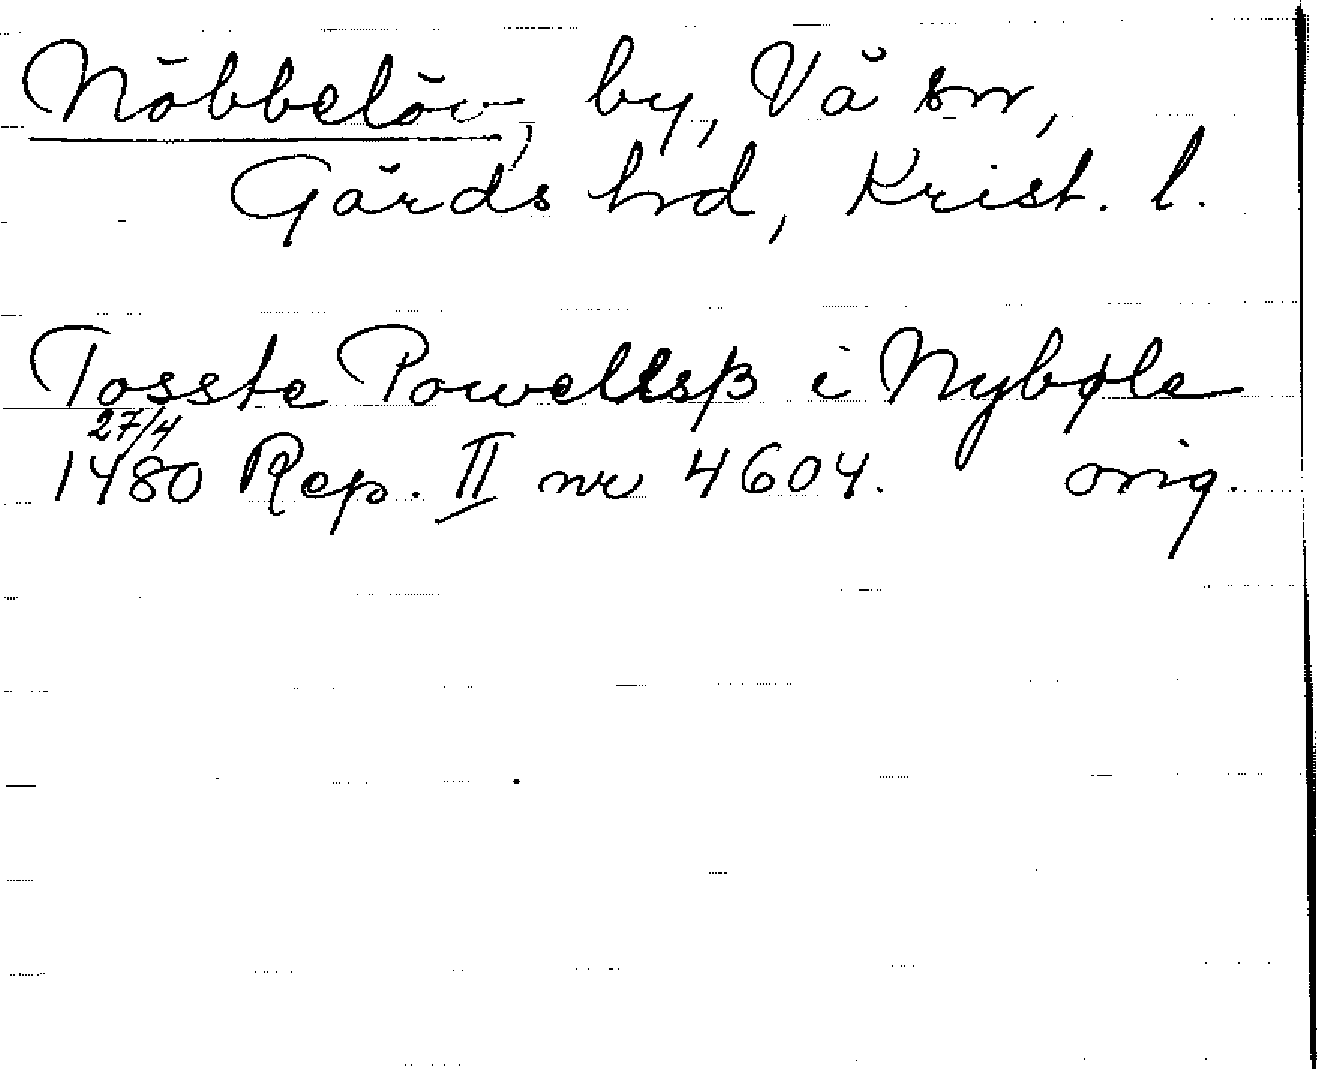 Nöbbelöv, by, Vä sn,
Gärds hrd, Krist. l.
Tosste Powellsβ i Nybøle
27/4
1480 Rep. II nr 4604. orig.